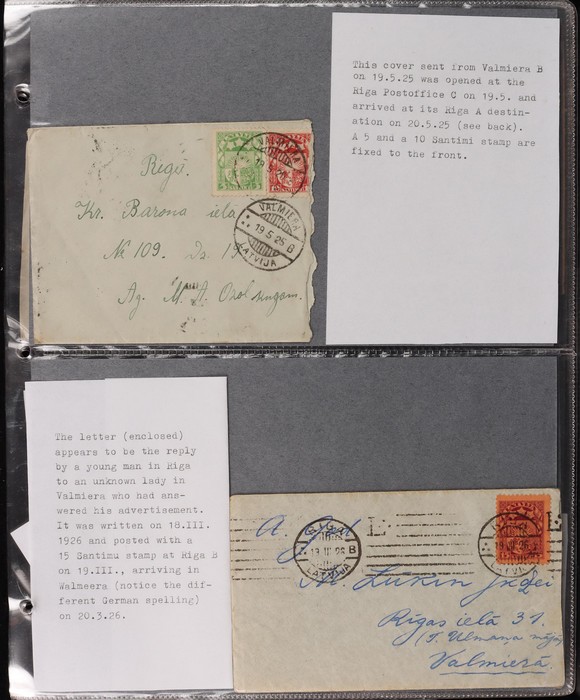 This cover sent from Valmiera B
on 19.5.25 was opened at the
Riga Postoffice C on 19.5. and
arrived at its Riga A destin-
ation on 20.5.25 (see back).
A 5 and a 10 Santimi stamp are
fixed to the front.
Rīgā.
Kr. Barona iela
№ 109. Dz. 19
VALMIERA
19 5 25 B
LATVIJA
The letter (enclosed)
appears to be the reply
by a young man in Riga
to an unknown lady in
Valmiera who had ans-
wered his advertisement.
It was written on 18.III.
1926 and posted with a
15 Santimu stamp at Riga B
on 19.III., arriving in
Walmeera (notice the dif-
ferent German spelling)
on 20.3.26.
RIGA
19 III 26 B
LATVIJA
A. God.
M. Lukin
Rīgas ielā 31.
Valmierā.